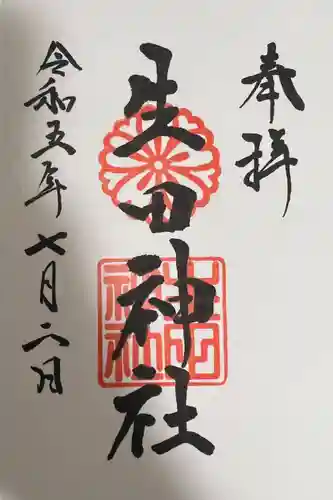 奉拝
生田神社
生田神社
令和五年七月二日